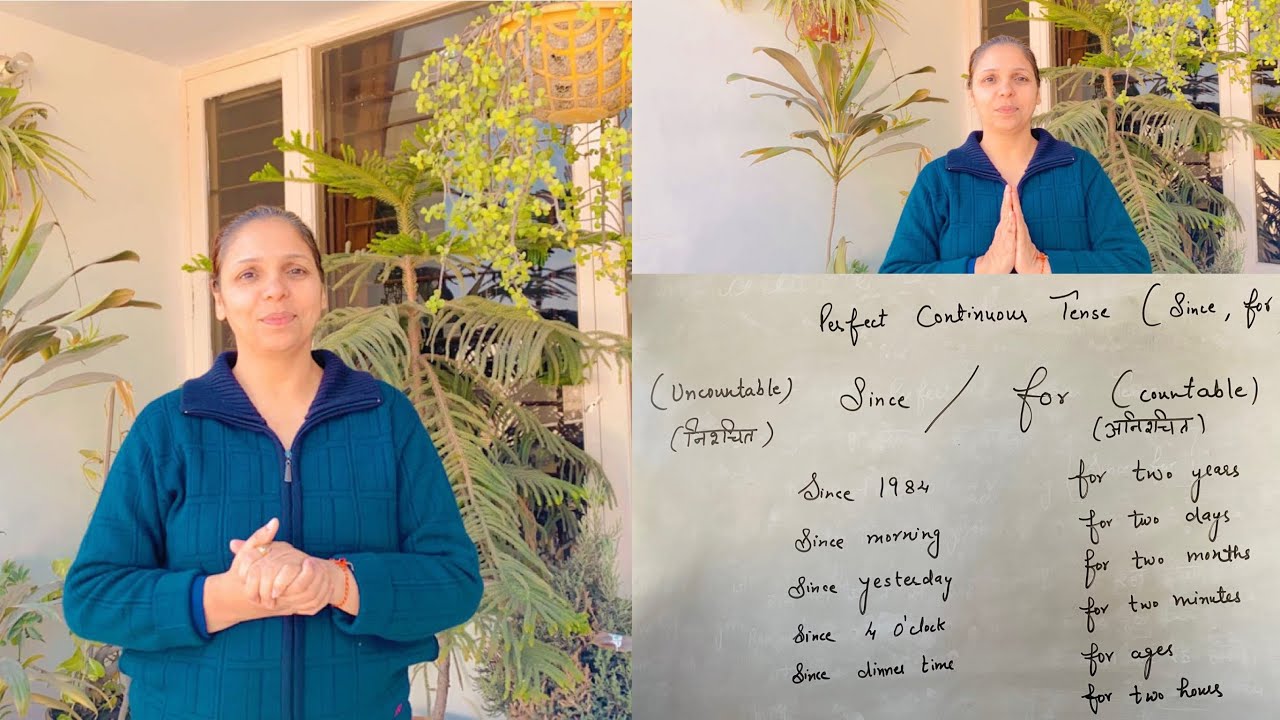 Perfect Continuous Tense (Since, for
(Uncountable) Since / for (countable)
(निश्चित) (अनिश्चित)
Since 1984 for two years
Since morning for two days
Since yesterday for two months
Since 4 O'clock for two minutes
Since dinner time for ages
for two hours